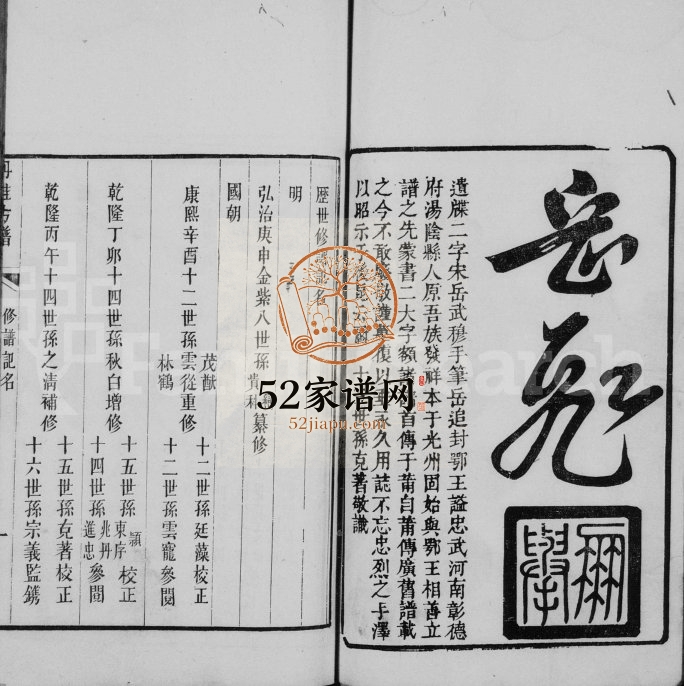 遺牒二字宋岳武穆手筆岳追封鄂王謚忠武河南彰德
府湯陰縣人原吾族發祥本于光州固始與鄂王相善立
譜之先蒙書二大字額諸譜首傳于莆自莆傳廣舊譜載
之今不敢
復以
永久用誌不忘忠烈之手澤
以昭示子
世孫克著敬識
歷世修
名
明
弘治庚申金紫八世孫
纂修
國朝
康熙辛酉十二世孫雲從重修
茂猷
林鶴
十二世孫廷藻校正
十二世孫雲寵參閱
乾隆丁卯十四世孫秋白增修
十五世孫東序
兆丹
穎
校正
十四世孫進忠參閱
乾隆丙午十四世孫之清補修
十五世孫克著校正
十六世孫宗義監鐫
修譜記名
一
52家谱网
52jiapu.com